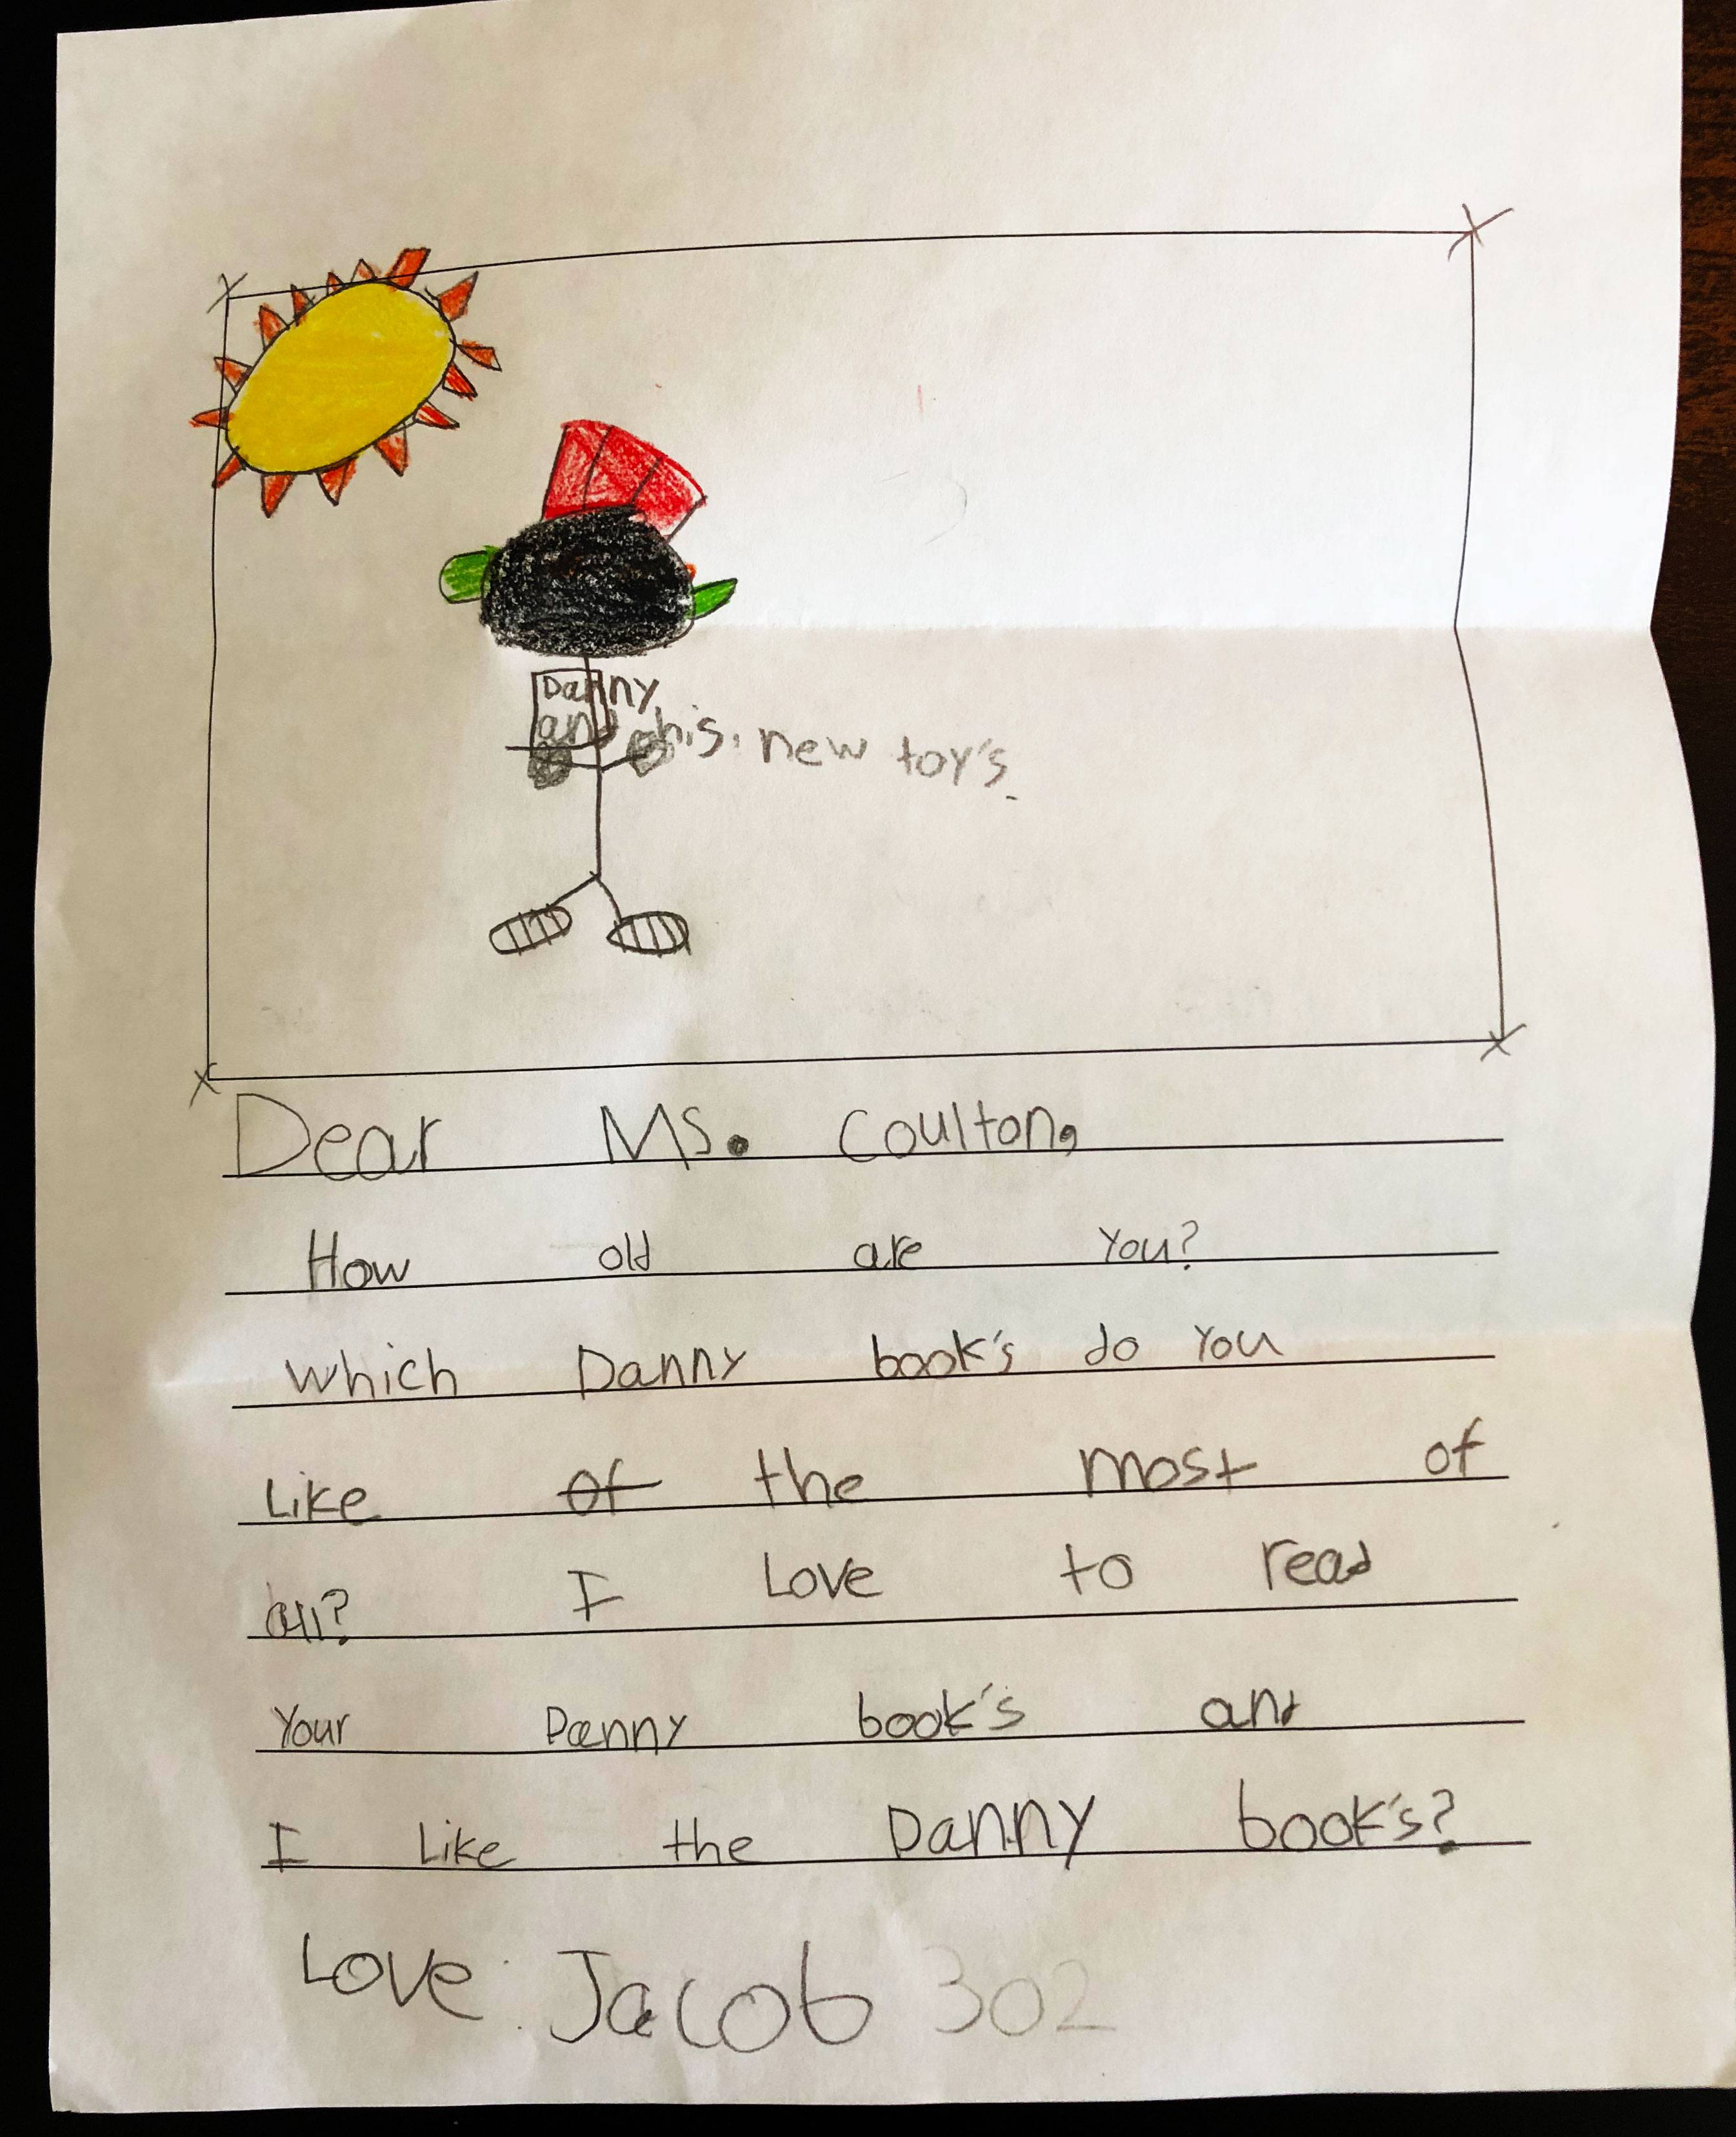 Danny
and his. new toy's.
Dear Ms. Coulton,
How old are you?
which Danny book's do you
Like of the most of
all? I Love to read
Your Danny book's and
I Like the Danny book's?
Love Jacob 302